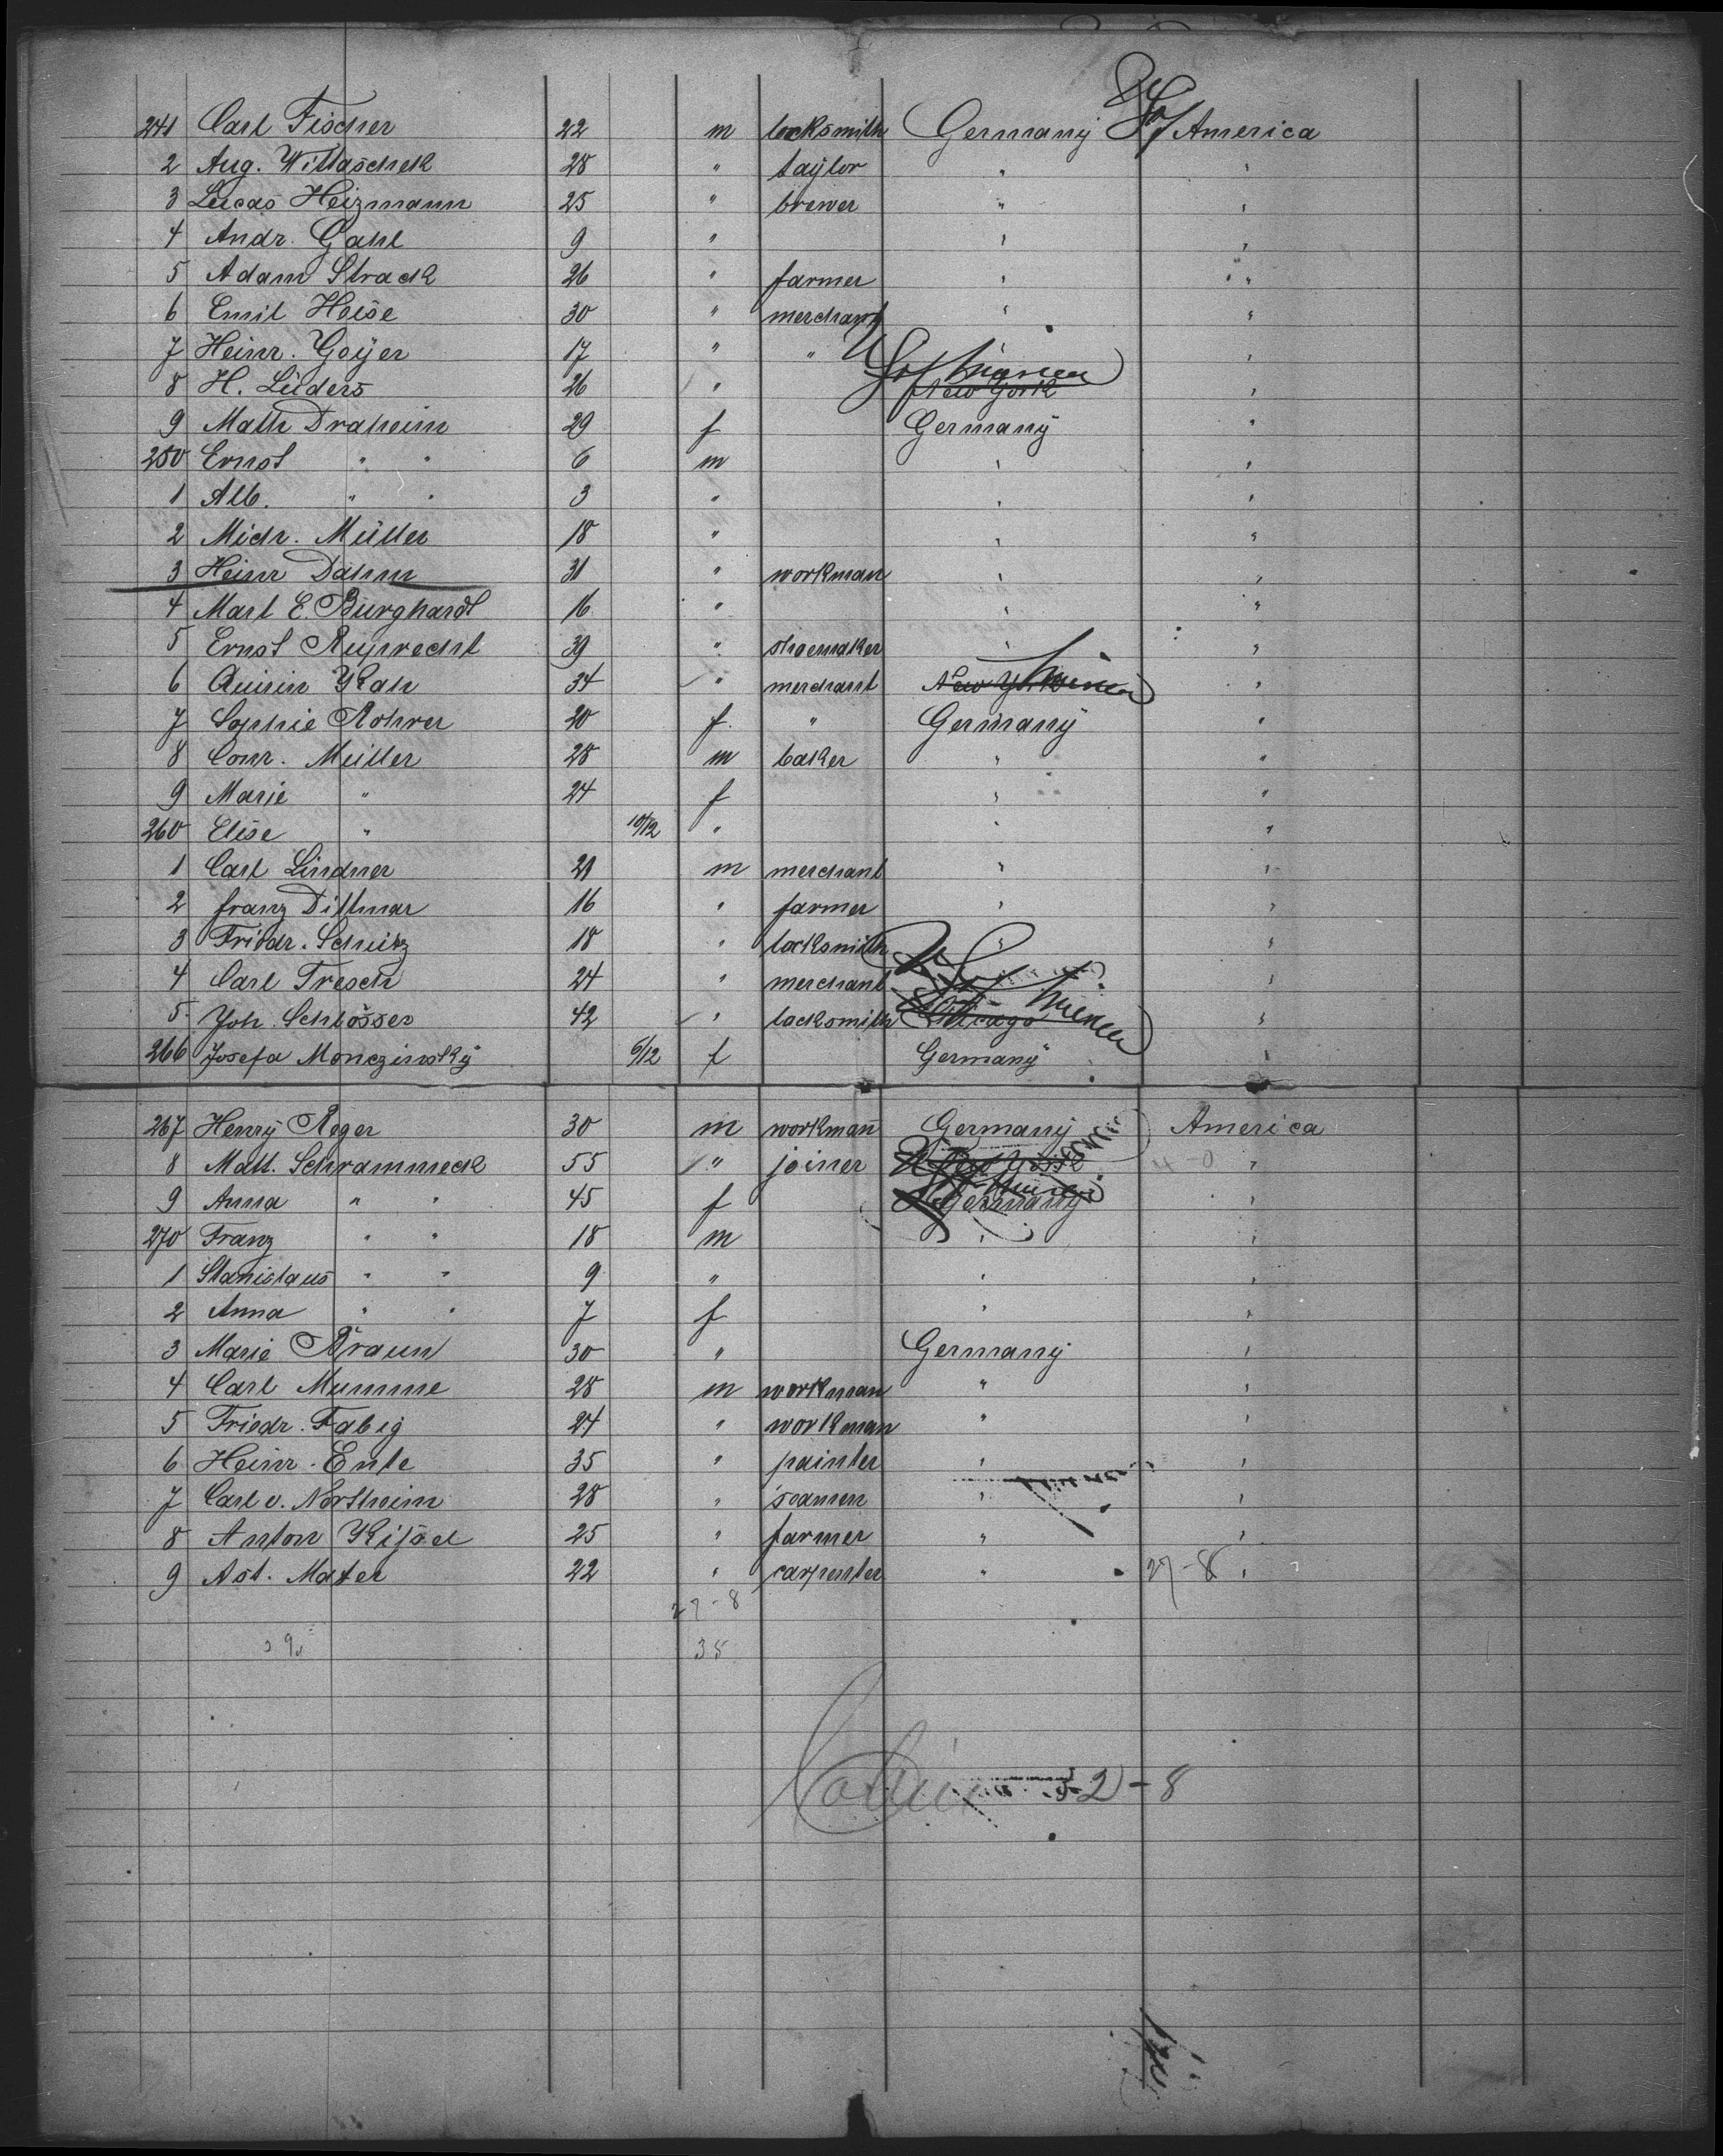 241 Carl Fischer 22 m locksmith Germany America
2 Aug. Wittaschek 28 " taylor " "
3 Lucas Heizmann 25 " brewer " "
4 Andr. Gahl 9 " " "
5 Adam Strack 26 " farmer " "
6 Emil Heise 30 " merchant " "
7 Heinr. Goÿer 17 " " "
8 H. Lüders 26 " New York "
9 Math Draheim 29 f Germany "
250 Ernst " " 6 m " "
1 Alb. " " 3 " " "
2 Mich. Müller 18 " " "
3 Heinr Dahm 31 " workman " "
4 Marl E. Burghardt 16 " " "
5 Ernst Ruprecht 39 " shoemaker " "
6 Quirin Rah 34 " merchant New York "
7 Sophie Rohrer 20 f " Germany "
8 Conr. Müller 28 m baker " "
9 Marie " 24 f " "
260 Elise " 10/12 " " "
1 Carl Lindner 21 m merchant " "
2 Franz Dittmar 16 " farmer " "
3 Friedr. Schütz 18 " locksmith " "
4 Carl Tresch 24 " merchant "
5 Joh. Schlösser 42 " locksmith Chicago "
266 Josefa Monczinsky 6/12 f Germany "
267 Henry Reger 30 m workman Germany America
8 Matt. Schrammeck 55 " joiner New York "
9 Anna " " 45 f Germany "
270 Franz " " 18 m " "
1 Stanislaus " " 9 " " "
2 Anna " " 7 f " "
3 Marie Braun 30 " Germany "
4 Carl Mumme 28 m workman " "
5 Friedr. Fabig 24 " workman " "
6 Heinr. Ente 35 " painter " "
7 Carl v. Northeim 28 " seamen " "
8 Anton 25 " farmer " "
9 Ast. Mater 22 " carpenter " 27-8 "
27-8
35
2-8